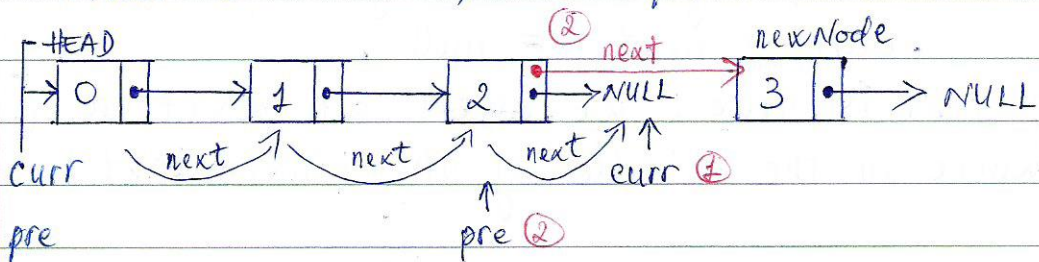 ②
HEAD next newNode
0 1 2 NULL 3 NULL
next next next
curr curr ①
pre pre ②